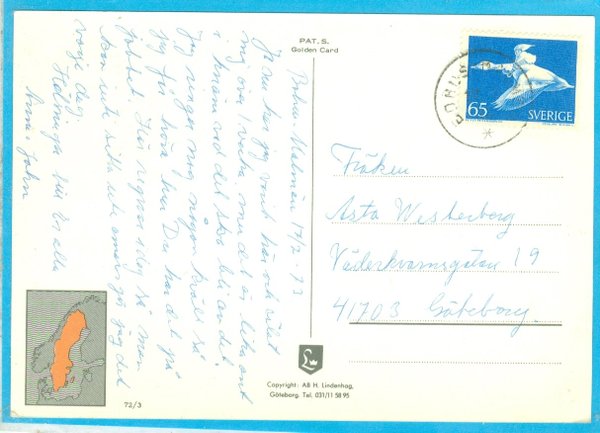 PAT. S.
Golden Card
65
SVERIGE
BOHUS
Bohus Malmön 17/2-73
Ja nu har jag varit här och vilat
mig över 1 vecka men det är lika ont
i knäna vad det ska bli av det.
Jag ringer nog någon kväll så
jag får höra hur Du har det på
jobbet. Här regnar idag så man
kan inte sitta ute annars går jag det
varje dag.
Hälsningar till Er alla
Anna, John
Fröken
Asta Westerberg
Väderkvarnsgatan 19
41703 Göteborg
72/3
Copyright: AB H. Lindenhag,
Göteborg. Tel. 031/11 58 95